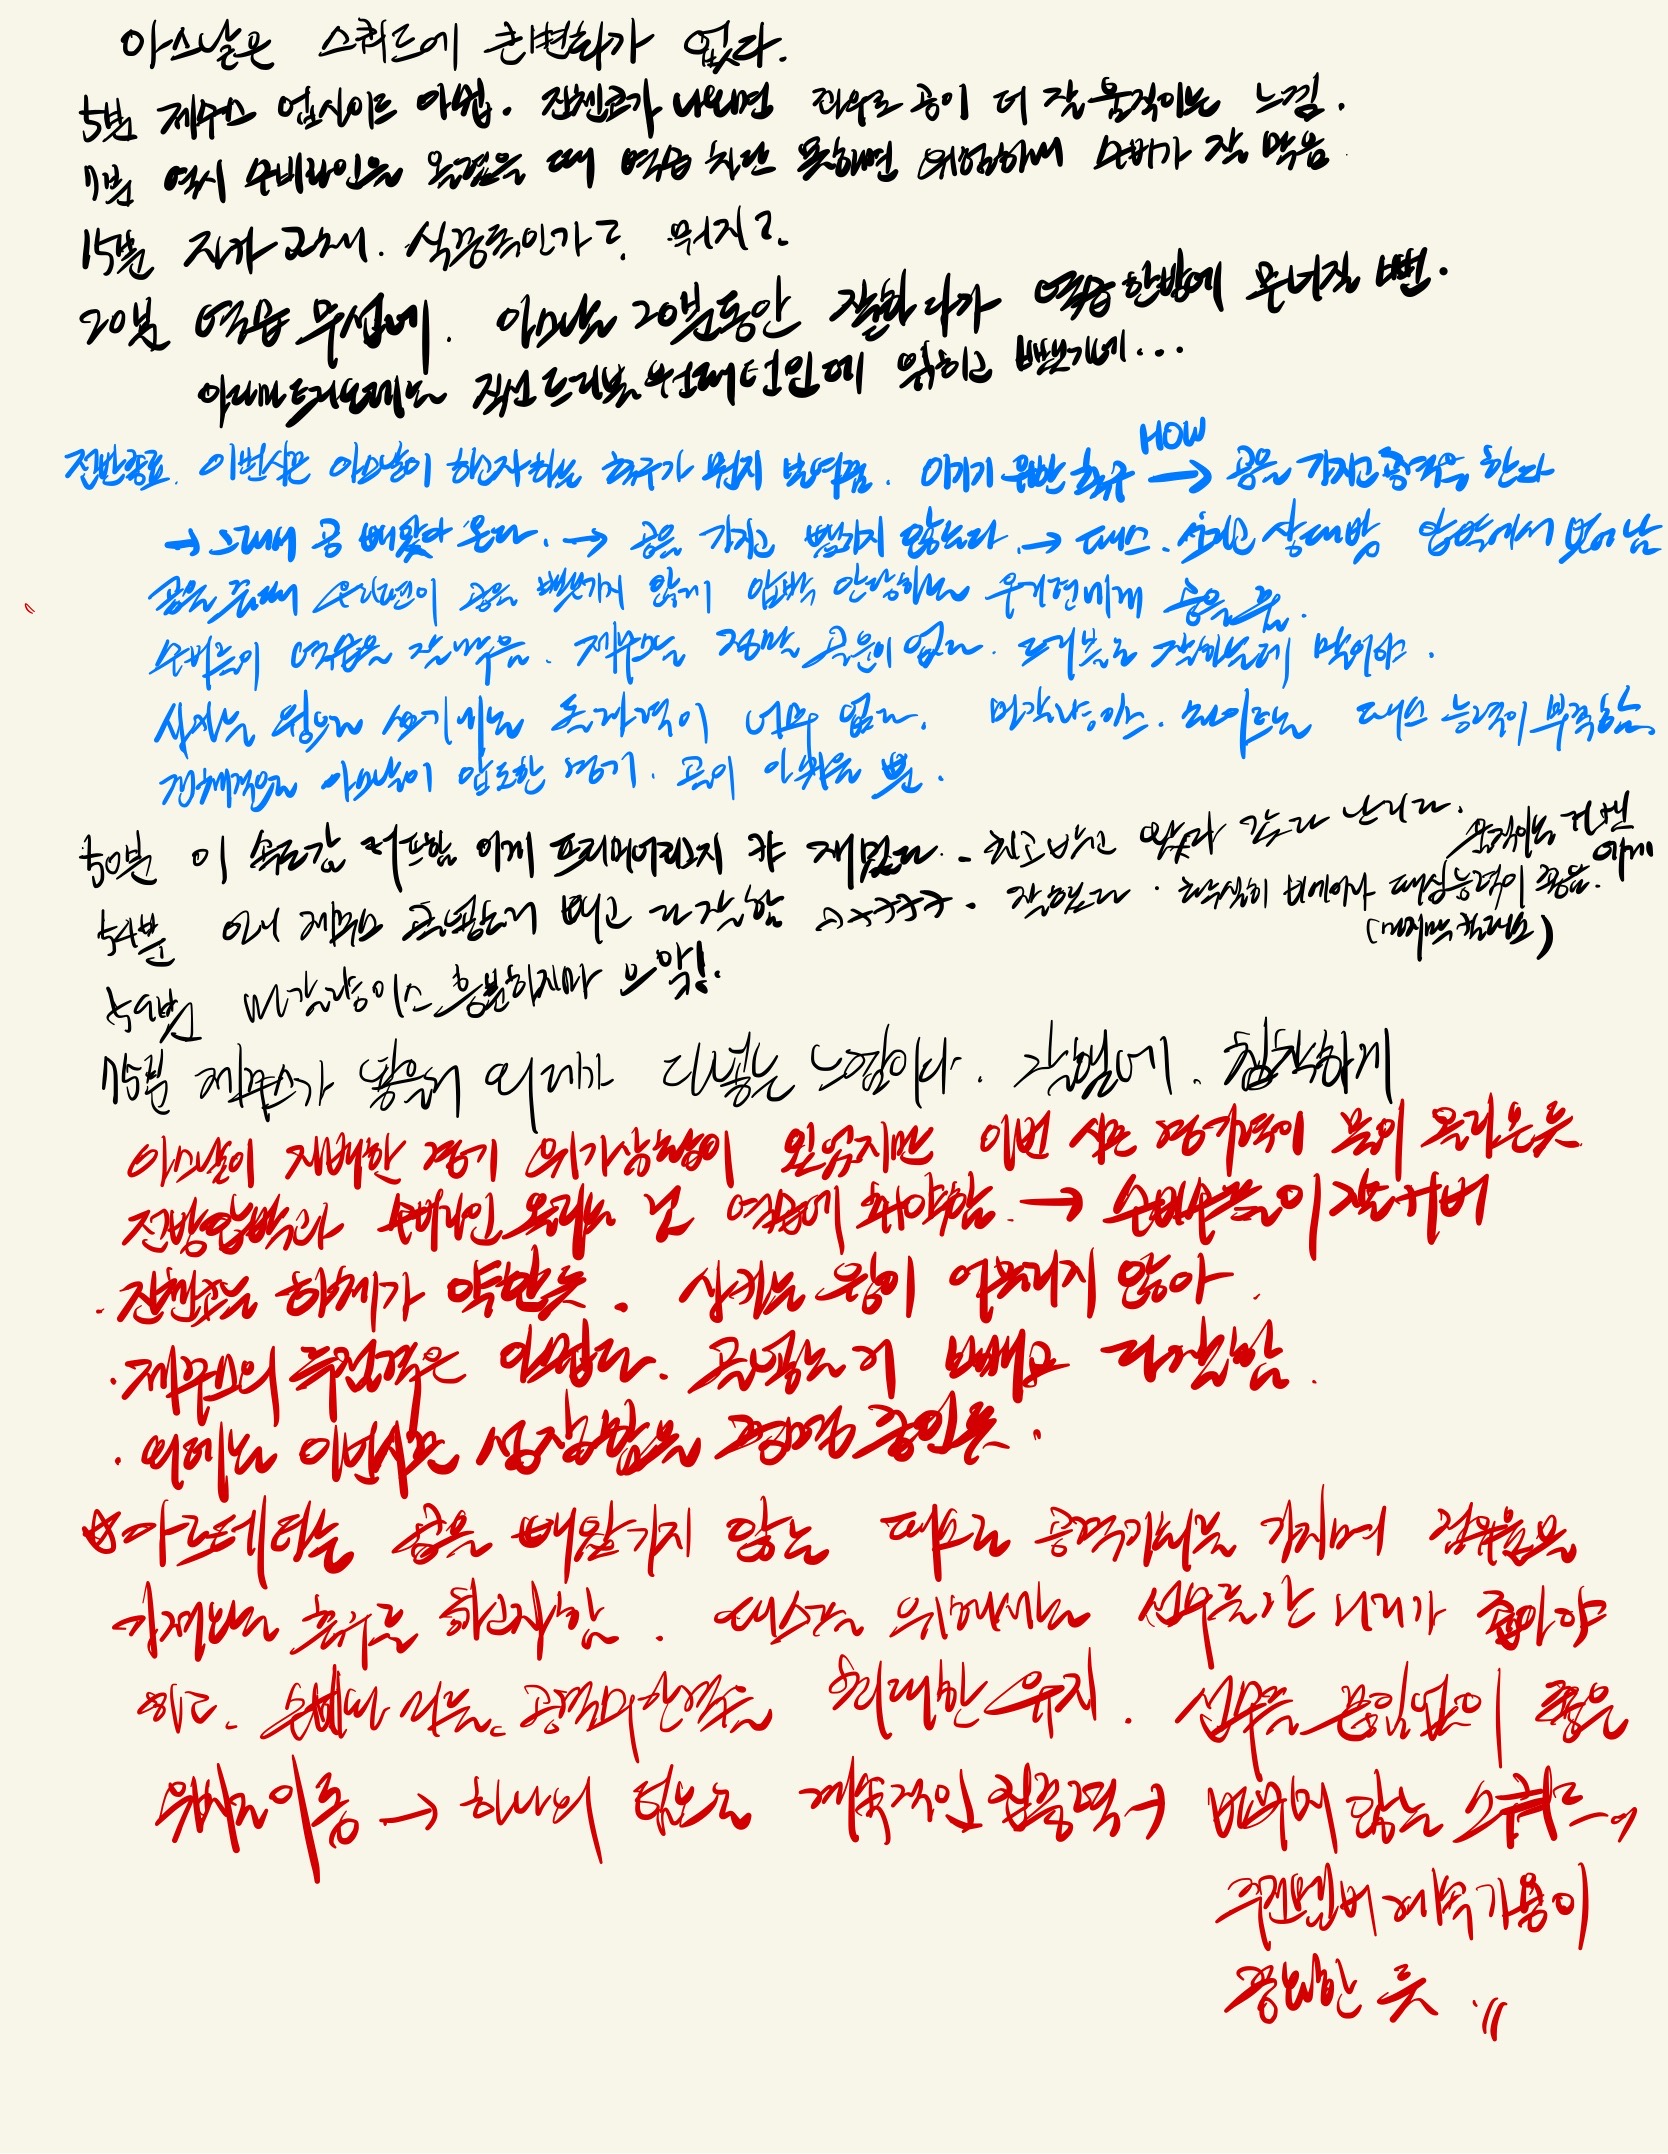 아스날은 스쿼드에 큰변화가 없다.
5분 제주스 업사이드 아쉽. 진첸코가 나오면 좌우로 공이 더 잘 움직이는 느낌.
7분 역시 수비라인을 올렸을 때 역습 차단 못하면 위험하네 수비가 잘 막음
15분 자카 교체. 식중독인가? 뭐지?
20분 역습 무섭네. 아스날 20분동안 잘하다가 역습 한방에 무너질 뻔.
직선 드리블 원패턴인데 읽히고 뺏기네...
전반종료. 이번시즌 아스날이 하고자하는 축구가 뭔지 보여짐. 이기기 위한 축구 HOW → 공을 가지고 공격을 한다
→ 그래서 공 빼앗아 온다. → 공을 가지고 뺏기지 않는다. → 패스. 상대방 압박에서 벗어남
공을 줄때 우리편이 공을 뺏기지 않게 압박 안당하는 우리편에게 공을 줌.
수비수의 역습을 잘 막음. 제주스는 정말 골운이 없다. 드리블은 잘하는데 말이야.
사카는 윙으로 존재력이 너무 없다. 마갈량이스. 화이트는 패스 능력이 부족함.
전체적으로 아스날이 압도한 경기. 골이 아쉬울 뿐.
50분 이 속도감 거프함 이게 프리미어리그지 캬 재밌다. 최고
54분 와 제주스 골넣는거 빼고 다 잘함 ㅋㅋㅋㅋ. 잘했다. 확실히 비에이라 패싱능력이 좋음.
(마지막 킬패스)
59분 마갈량이스 흥분하지마 으악!
75분 제주스가 넣을거 외데가 다넣는 느낌이다. 잘했네. 침착하게
아스날이 지배한 경기 위기상황이 있었지만 이번 시즌 경기력이 물이 올라온듯
전방압박과 수비라인 올리는 건 역습에 취약함 → 수비수들이 잘 커버
· 진첸코는 하체가 약한듯. 사카는 윙이 어울리지 않아.
· 제주스의 득점력은 아쉽다. 골넣는거 빼고 다잘함.
· 외데는 이번시즌 성장함을 증명 중인듯.
☆아르테타는 공을 빼앗기지 않는 패스로 공격기회를 가지며 점유율을
가져가는 축구를 하고자함. 패스를 위해서는 선수들간 거리가 좁아야
하고. 수비와 공격의 간격을 최대한 유지. 선수들 끊임없이 좋은
위치로 이동 → 하나의 팀으로 계속적인 집중력 → 바뀌지 않는 스쿼드
주전멤버 계속 가용이
중요한 듯.